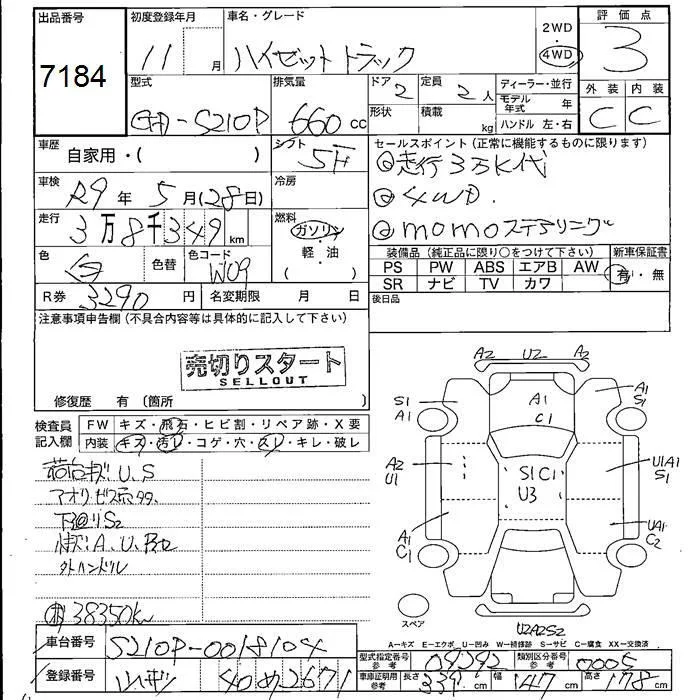 出品番号 7184
初度登録年月 11月
車名・グレード ハイゼットトラック
2WD 4WD
評価点 3
外装 内装
C C
型式 GD-S210P
排気量 660 cc
ドア 2 形状
定員 2人 積載 kg
ディーラー・並行
モデル年式 年
ハンドル 左・右
車歴 自家用・( )
シフト 5F
車検 R9年 5月(28日)
冷房
走行 3万8千349 km
燃料 ガソリン 軽・油 ( )
色 白 色替 色コード W09
R券 3290 円 名変期限 月 日
セールスポイント(正常に機能するものに限ります)
◎走行3万K代
◎4WD.
◎momoステアリング
装備品(純正品に限り○をつけて下さい) 新車保証書
PS PW ABS エアB AW 有・無
SR ナビ TV カワ
後日品
注意事項申告欄(不具合内容等は具体的に記入して下さい)
売切りスタート
SELLOUT
修復歴 有(箇所 )
検査員記入欄 FW キズ・飛石・ヒビ割・リペア跡・X要
内装 キズ・汚レ・コゲ・穴・スレ・キレ・破レ
荷台キズ U、S
アオリ
下回りS2
A、U
外ハンドル
38350km
A2 U2 A2
S1 A1
A1 C1
A1 S1
A2 U1
S1C1 U3
U1A1 S1
A1 C1
UA1 C2
スペア
U2A2S2
A-キズ E-エクボ U-凹み W-補修跡 S-サビ C-腐食 XX-交換済
車台番号 S210P-0018104
型式指定番号 参考 09292 類別区分番号 参考 0005
登録番号 40 め 2671
車庫証明用 参考 長さ 339 cm 幅 147 cm 高さ 178 cm